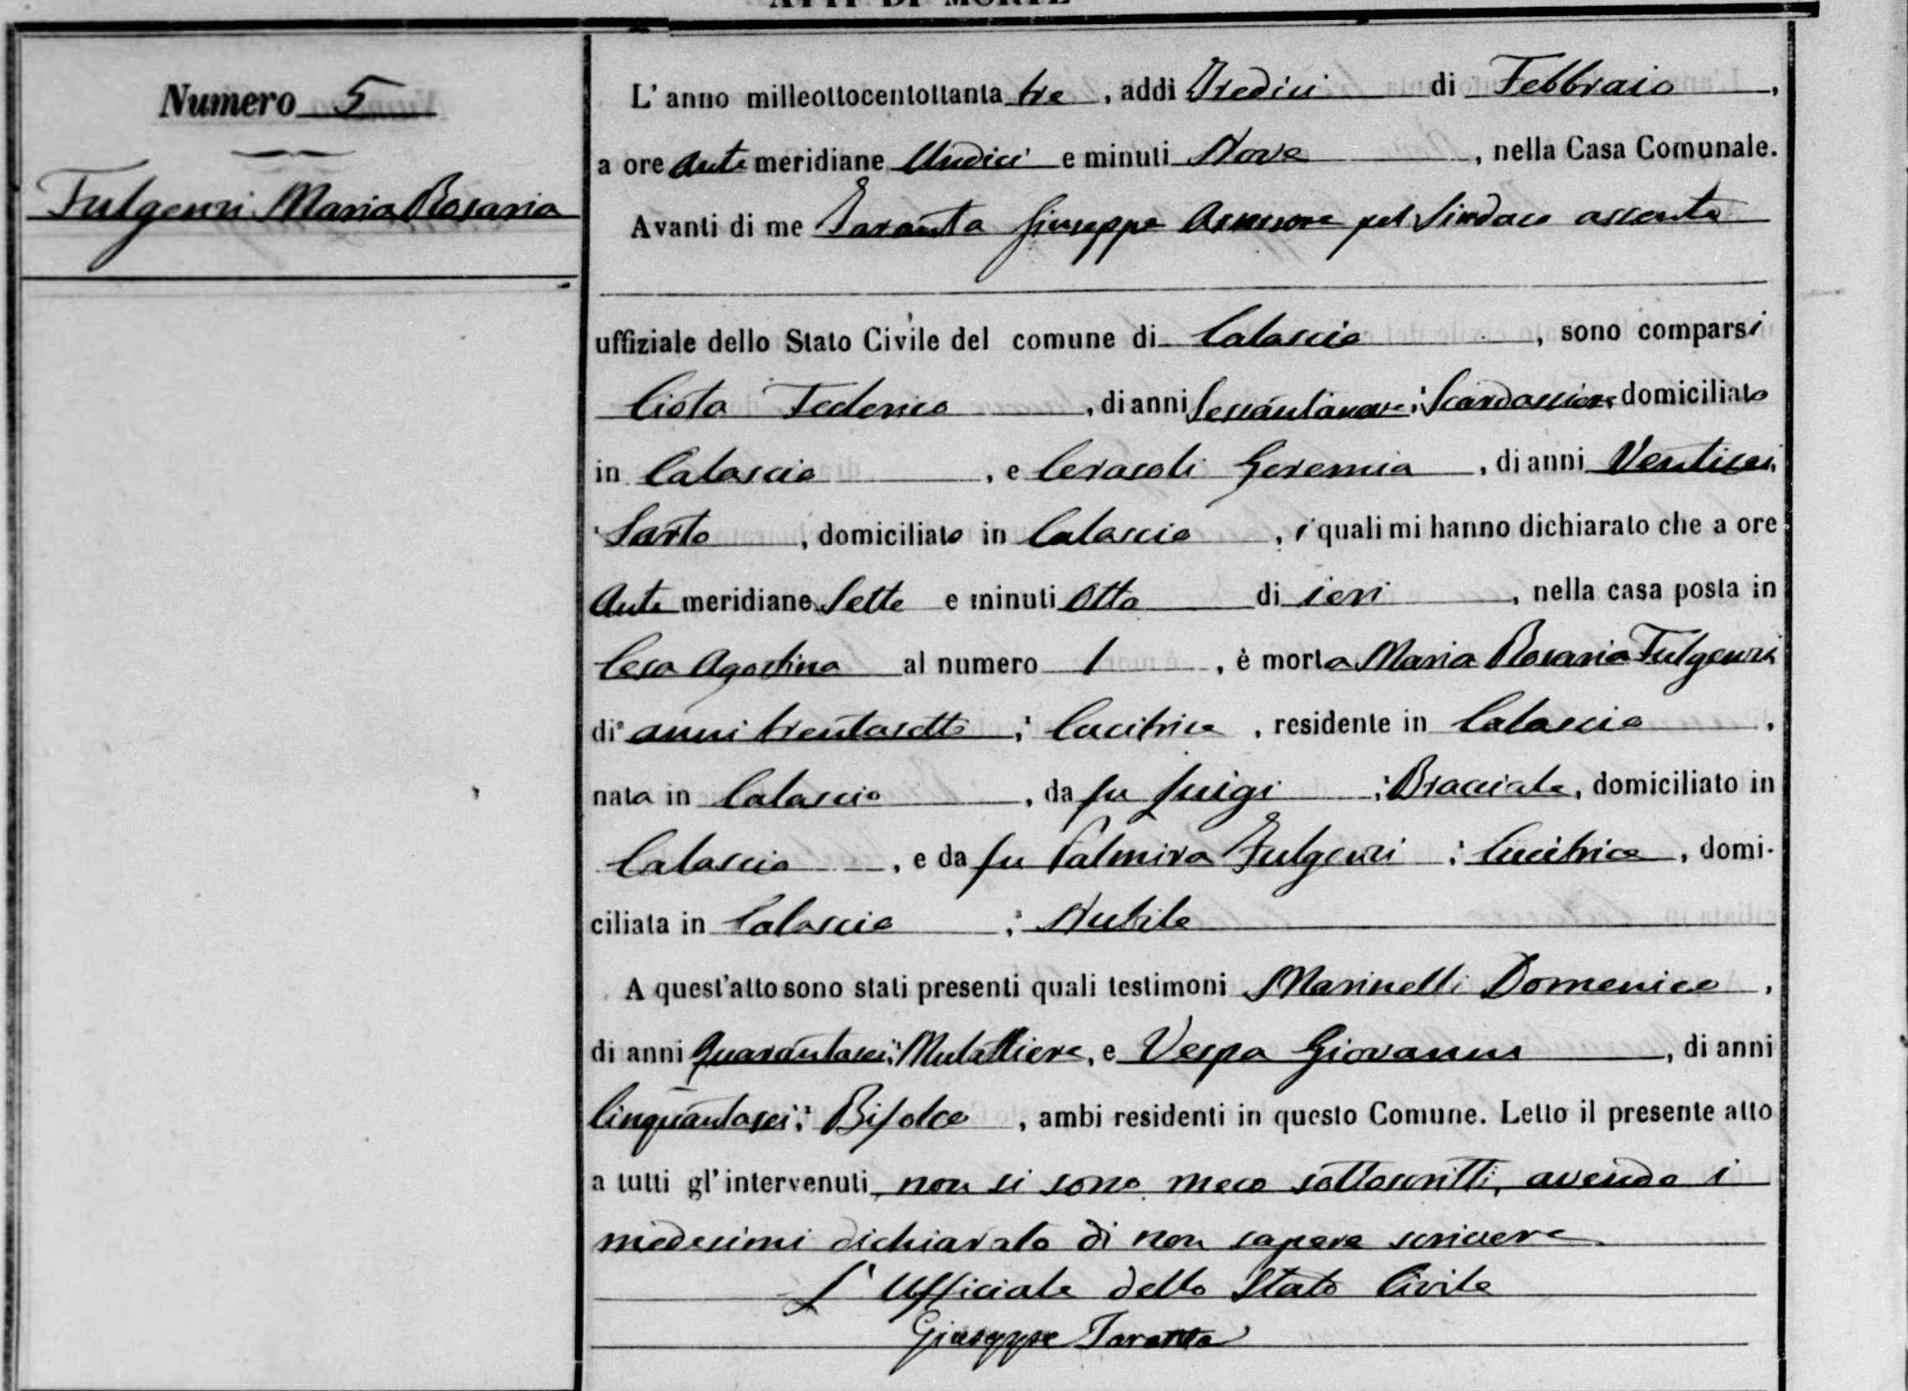 ATTI DI MORTE
Numero 5
Fulgenzi Maria Rosaria
L'anno milleottocentottanta tre, addì Tredici di Febbraio,
a ore Ante meridiane Undici e minuti Nove, nella Casa Comunale.
Avanti di me Taranta Giuseppe Assessore pel Sindaco assente
uffiziale dello Stato Civile del comune di Calascio, sono comparsi
Ciota Federico, di anni Sessantanove; Scardassiere domiciliato
in Calascio, e Cerasoli Geremia, di anni Ventisei,
Sarto, domiciliato in Calascio, i quali mi hanno dichiarato che a ore
Ante meridiane Sette e minuti Otto di ieri, nella casa posta in
Cesa Agostina al numero 1, è morta Maria Rosaria Fulgenzi
di anni trentasette; Cucitrice, residente in Calascio,
nata in Calascio, da fu Luigi; Bracciale, domiciliato in
Calascio, e da fu Palmira Fulgenzi; Cucitrice, domi-
ciliata in Calascio; Nubile
A quest'atto sono stati presenti quali testimoni Marinelli Domenico,
di anni Quarantasei; Mulattiere, e Vespa Giovanni, di anni
Cinquantasei; Bifolco, ambi residenti in questo Comune. Letto il presente atto
a tutti gl'intervenuti, non si sono meco sottoscritti, avendo i
medesimi dichiarato di non sapere scrivere
L'Ufficiale dello Stato Civile
Giuseppe Taranta